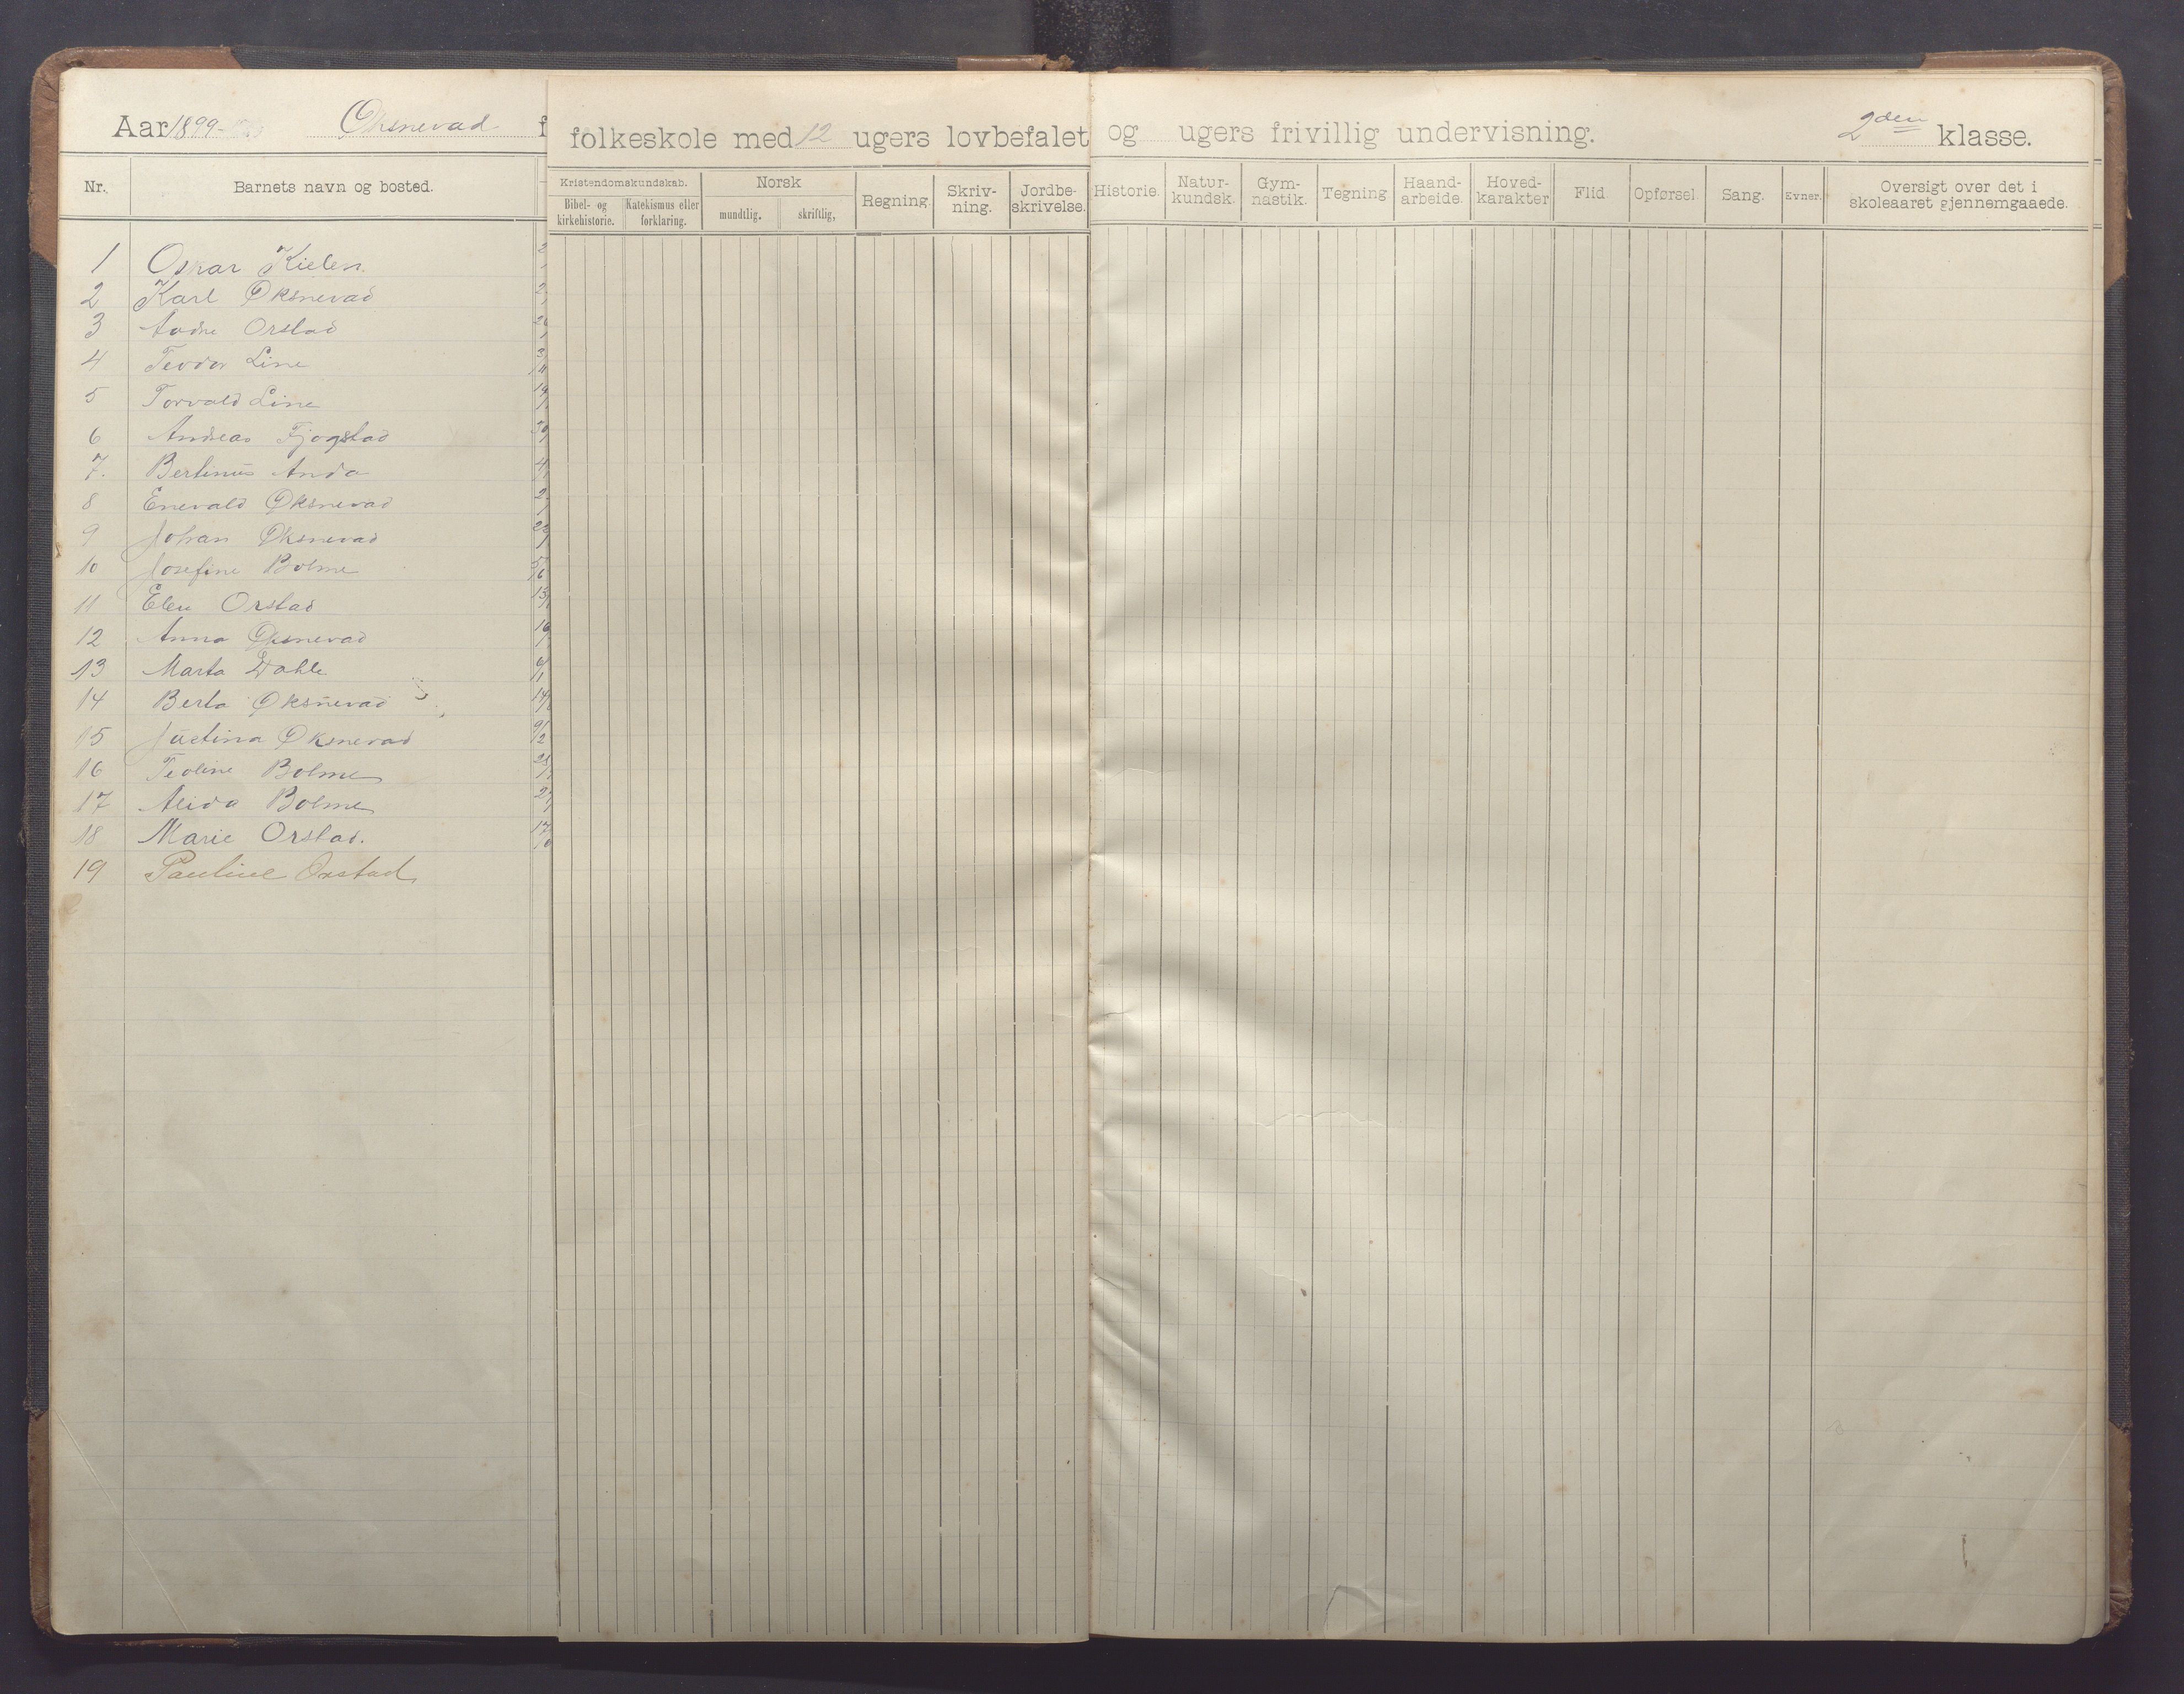 Aar 1899- Øksnevad f
folkeskole med 12 ugers lovbefalet og ugers frivillig undervisning. 2den klasse.
Nr. Barnets navn og bosted.
Kristendomskundskab. Norsk Regning. Skriv- Jordbe- Historie. Natur- Gym- Tegning Haand- Hoved- Flid Opførsel Sang. Evner. Oversigt over det i
Bibel- og Katekismus eller mundtlig. skriftlig, ning. skrivelse. kundsk. nastik. arbeide. karakter skoleaaret gjennemgaaede.
kirkehistorie. forklaring.
1 Oskar Kielen
2 Karl Øksnevad
3 Andre Orstad
4 Teodor Line
5 Torvald Line
6 Andreas Fjogstad
7. Bertinus Anda
8 Enevald Øksnevad
9 Johan Øksnevad
10 Josefine Bolme
11 Elen Orstad
12 Anna Øksnevad
13 Marta Dahle
14 Berta Øksnevad
15 Justina Øksnevad
16 Teoline Bolme
17 Alida Bolme
18 Marie Orstad.
19 Pauline Orstad